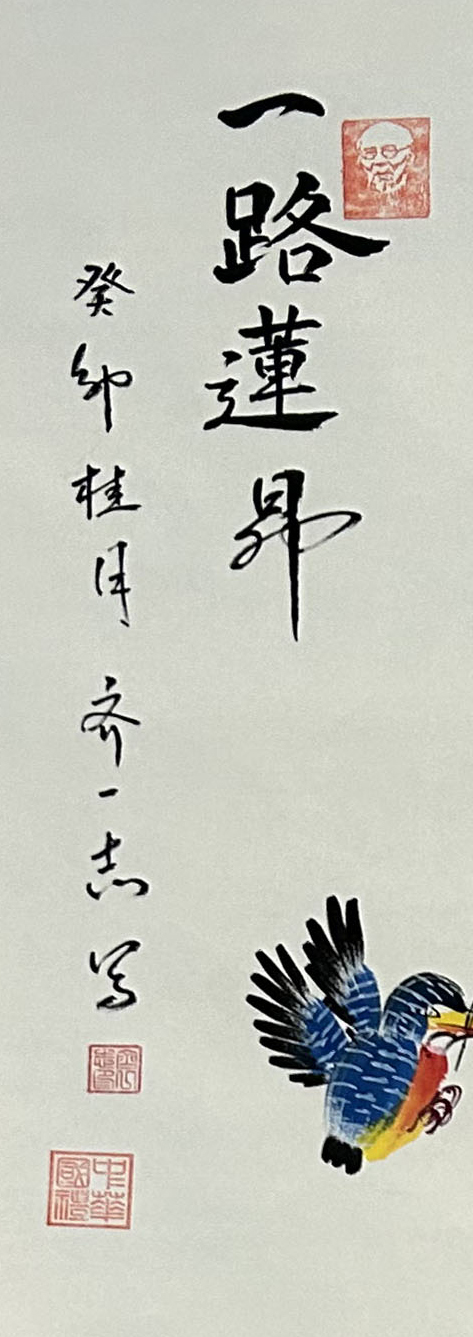 一路蓮昇
癸卯桂月齐一志写
中華國禮